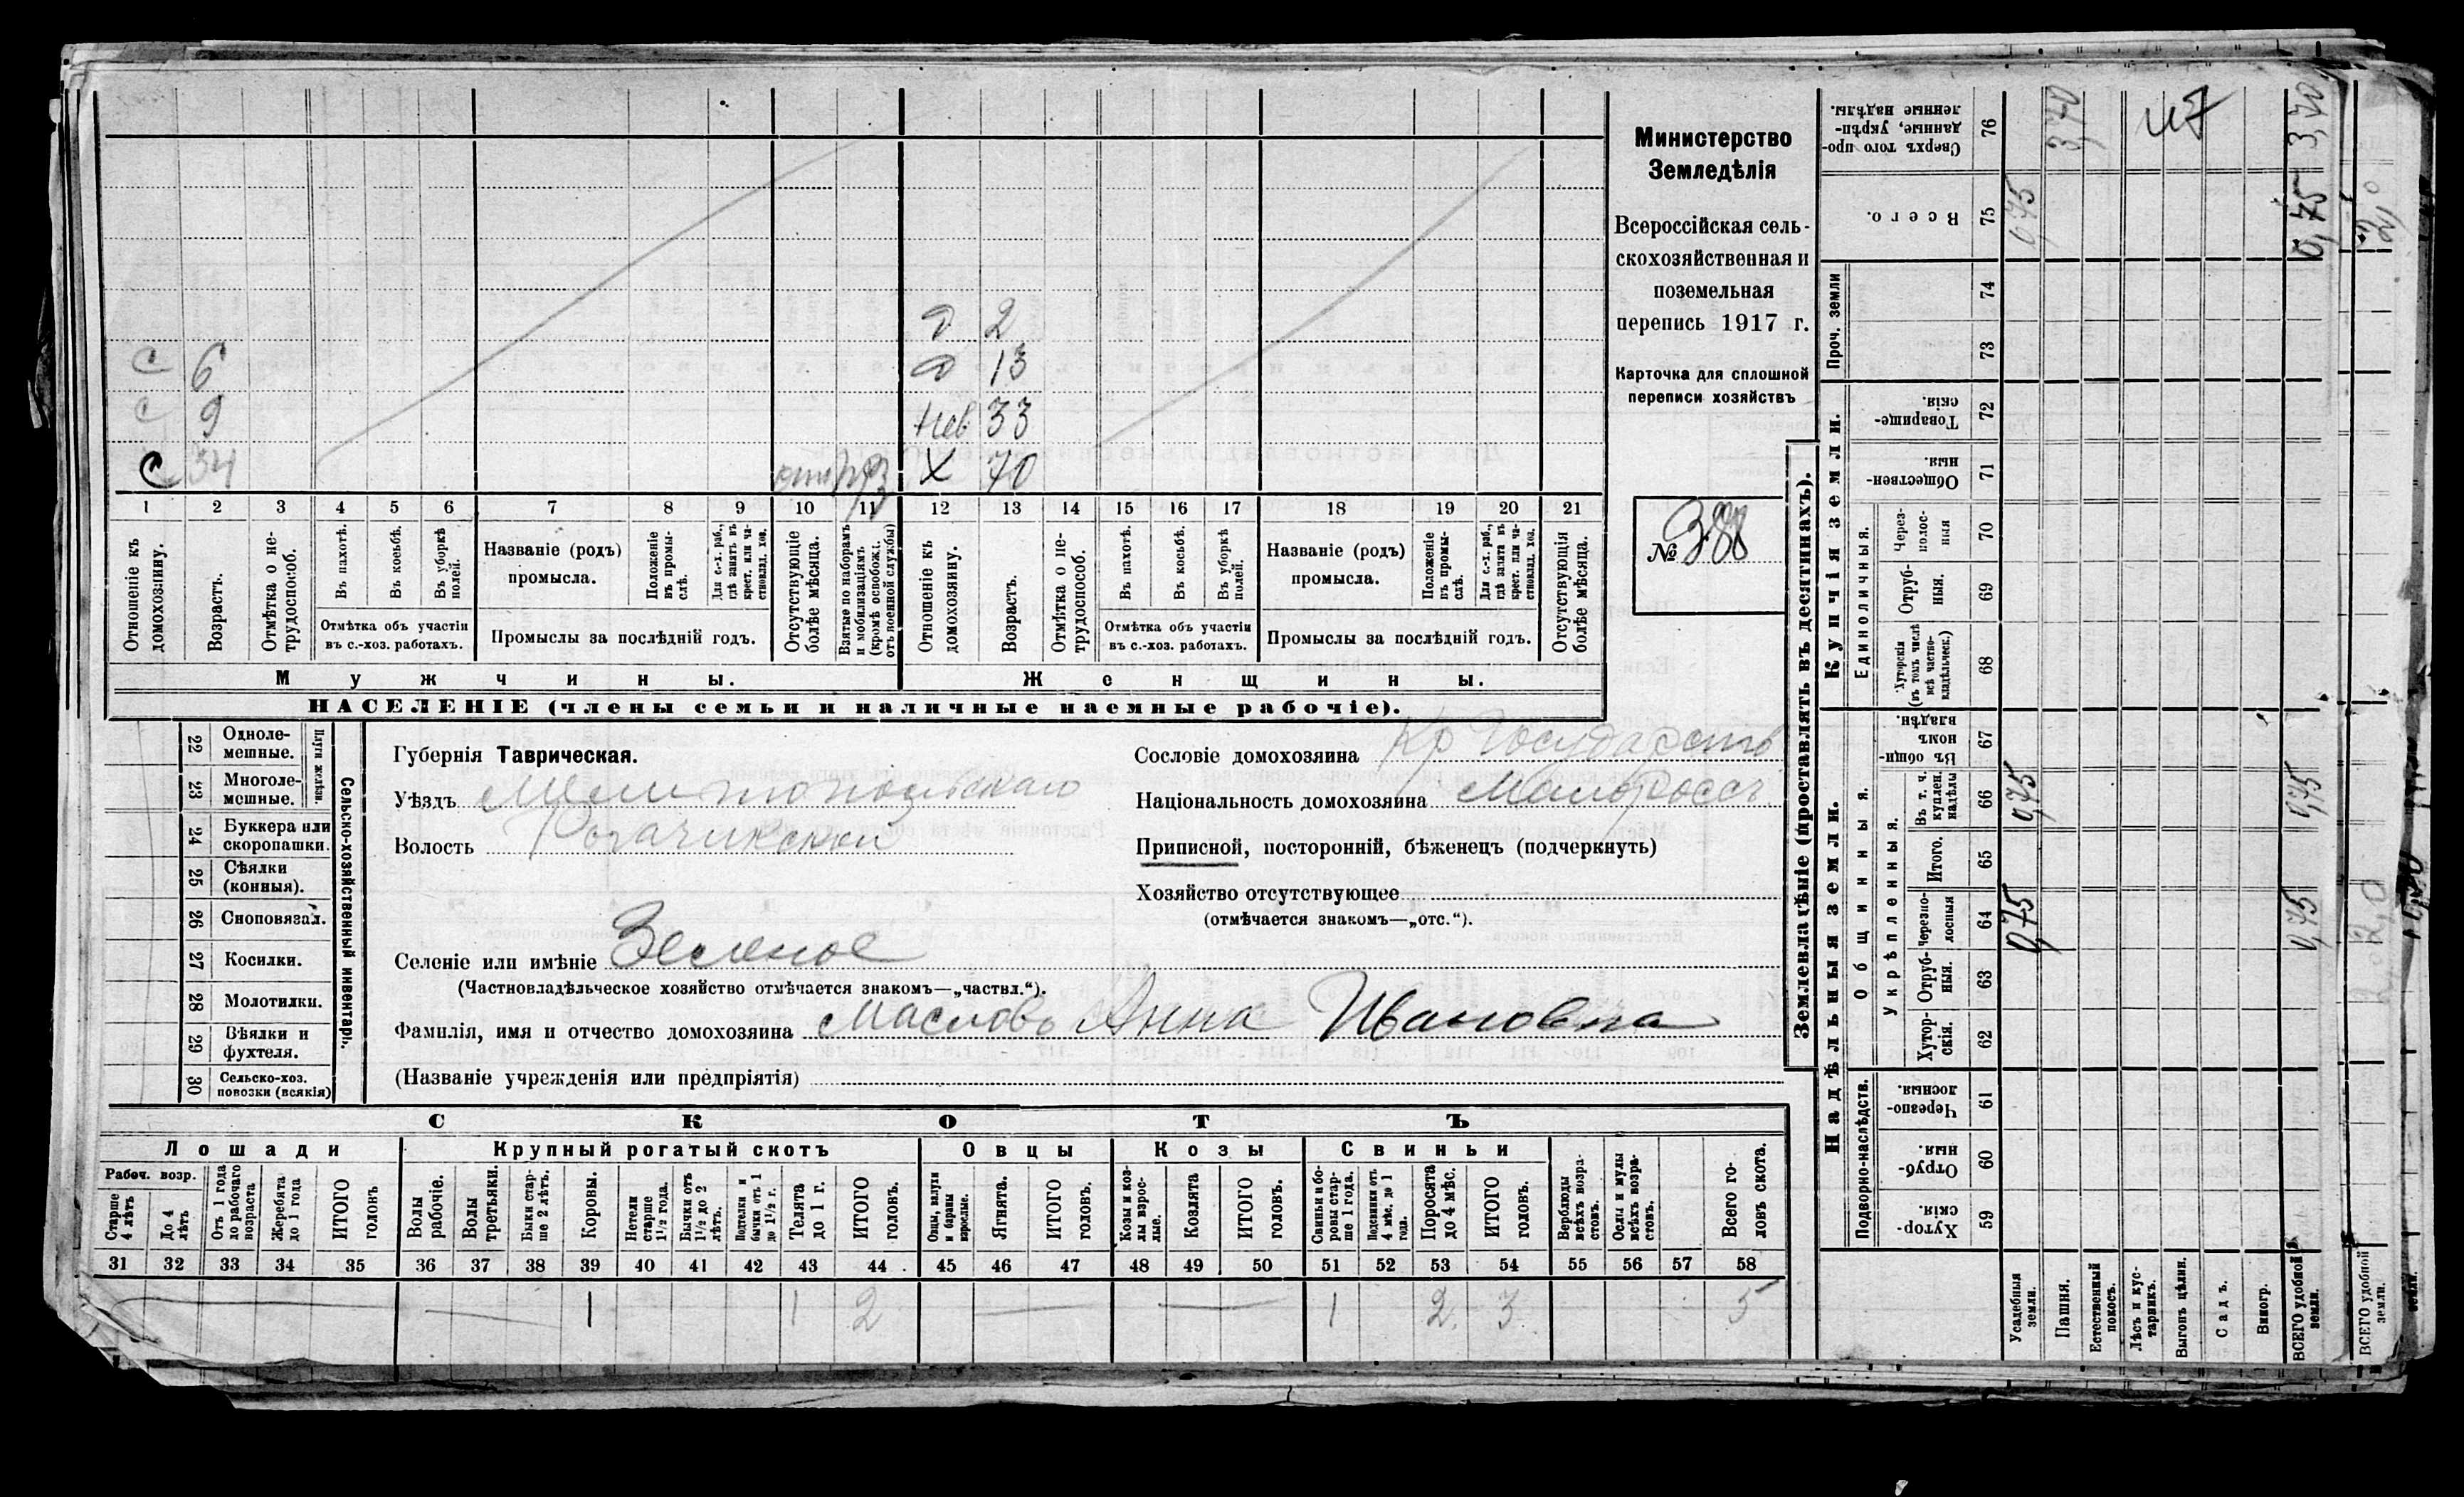 д 2
с 6 д 13
с 9 нев 33
с 34 отс Х 70
1 2 3 4 5 6 7 8 9 10 11 12 13 14 15 16 17 18 19 20 21
Отношеніе къ домохозяину.
Возрастъ.
Отмѣтка о нетрудоспособ.
Въ пахотѣ.
Въ косьбѣ.
Въ уборкѣ полей.
Отмѣтка объ участіи
въ с.-хоз. работахъ.
Названіе (родъ)
промысла.
Положеніе въ промыслѣ.
Для с.-х. раб., гдѣ занятъ въ крест. или частновлад. хоз.
Промыслы за послѣдній годъ.
Отсутствующіе болѣе мѣсяца.
Взятые по наборамъ и мобилизаціямъ (кромѣ освобожд. отъ военной службы)
Отношеніе къ домохозяину.
Возрастъ.
Отмѣтка о нетрудоспособ.
Въ пахотѣ.
Въ косьбѣ.
Въ уборкѣ полей.
Отмѣтка объ участіи
въ с.-хоз. работахъ.
Названіе (родъ)
промысла.
Положеніе въ промыслѣ.
Для с.-х. раб., гдѣ занята въ крест. или частновлад. хоз.
Промыслы за послѣдній годъ.
Отсутствующія болѣе мѣсяца.
Мужчины. Женщины.
НАСЕЛЕНІЕ (члены семьи и наличные наемные рабочіе).
Министерство
Земледѣлія
Всероссійская сель-
скохозяйственная и
поземельная
перепись 1917 г.
Карточка для сплошной
переписи хозяйствъ
№ 388
22 Одноле-
мешные.
23 Многоле-
мешные.
Плуги желѣзн.
24 Буккера или
скоропашки.
25 Сѣялки
(конныя).
26 Сноповязал.
27 Косилки.
28 Молотилки.
29 Вѣялки и
фухтеля.
30 Сельско-хоз.
повозки (всякія)
Сельско-хозяйственный инвентарь.
Губернія Таврическая.
Уѣздъ Мелитопольскаго
Волость Рогачикской
Селеніе или имѣніе Зеленое
(Частновладѣльческое хозяйство отмѣчается знакомъ—„частвл.“).
Фамилія, имя и отчество домохозяина Масловъ Анна Ивановна
(Названіе учрежденія или предпріятія)
Сословіе домохозяина Кр Государств
Національность домохозяина Малороссъ
Приписной, посторонній, бѣженецъ (подчеркнуть)
Хозяйство отсутствующее
(отмѣчается знакомъ—„отс.“).
СКОТЪ
Лошади Крупный рогатый скотъ Овцы Козы Свиньи
Рабоч. возр.
Старше 4 лѣтъ
До 4 лѣтъ
Отъ 1 года до рабочаго возраста
Жеребята до 1 года
ИТОГО головъ
Волы рабочіе.
Волы третьяки.
Быки старше 2 лѣтъ.
Коровы.
Нетели старше 1½ года.
Бычки отъ 1½ до 2 лѣтъ.
Подтелки и бычки отъ 1 до 1½ г.
Телята до 1 г.
ИТОГО головъ.
Овцы, валухи и бараны взрослые.
Ягнята.
ИТОГО головъ.
Козы и козлы взрослые.
Козлята
ИТОГО головъ.
Свиньи и боровы старше 1 года.
Подсвинки отъ 4 мѣс. до 1 года.
Поросята до 4 мѣс.
ИТОГО головъ.
Верблюды всѣхъ возрастовъ.
Ослы и мулы всѣхъ возрастовъ.
Всего головъ скота.
31 32 33 34 35 36 37 38 39 40 41 42 43 44 45 46 47 48 49 50 51 52 53 54 55 56 57 58
— 1 1 2 — — 1 2 3 5
Землевладѣніе (проставлять въ десятинахъ).
Надѣльныя земли. Купчія земли.
Подворно-наслѣдств.
Общинныя.
Укрѣпленныя.
Единоличныя.
Проч. земли
Хуторскія. 59
Отрубныя. 60
Черезполосныя. 61
Хуторскія. 62
Отрубныя. 63
Черезполосныя 64
Итого. 65
Въ т. ч. куплен. надѣлы 66
Въ общинномъ владѣн. 67
Хуторскія (въ томъ числѣ всѣ частновладѣльческ.) 68
Отрубныя. 69
Черезполосныя 70
Общественныя. 71
Товарищескія. 72
73
74
Всего. 75
Сверхъ того проданные, укрѣпленные надѣлы. 76
Усадебныя земли. 0,75 0,75 0,75
Пашня. 3,70
Естественный покосъ.
Лѣсъ и кустарникъ.
Выгонъ цѣлин.
Садъ.
Виногр.
ВСЕГО удобной земли. 0,75 0,75 0,75 3,70
ВСЕГО удобной земли.
земли.